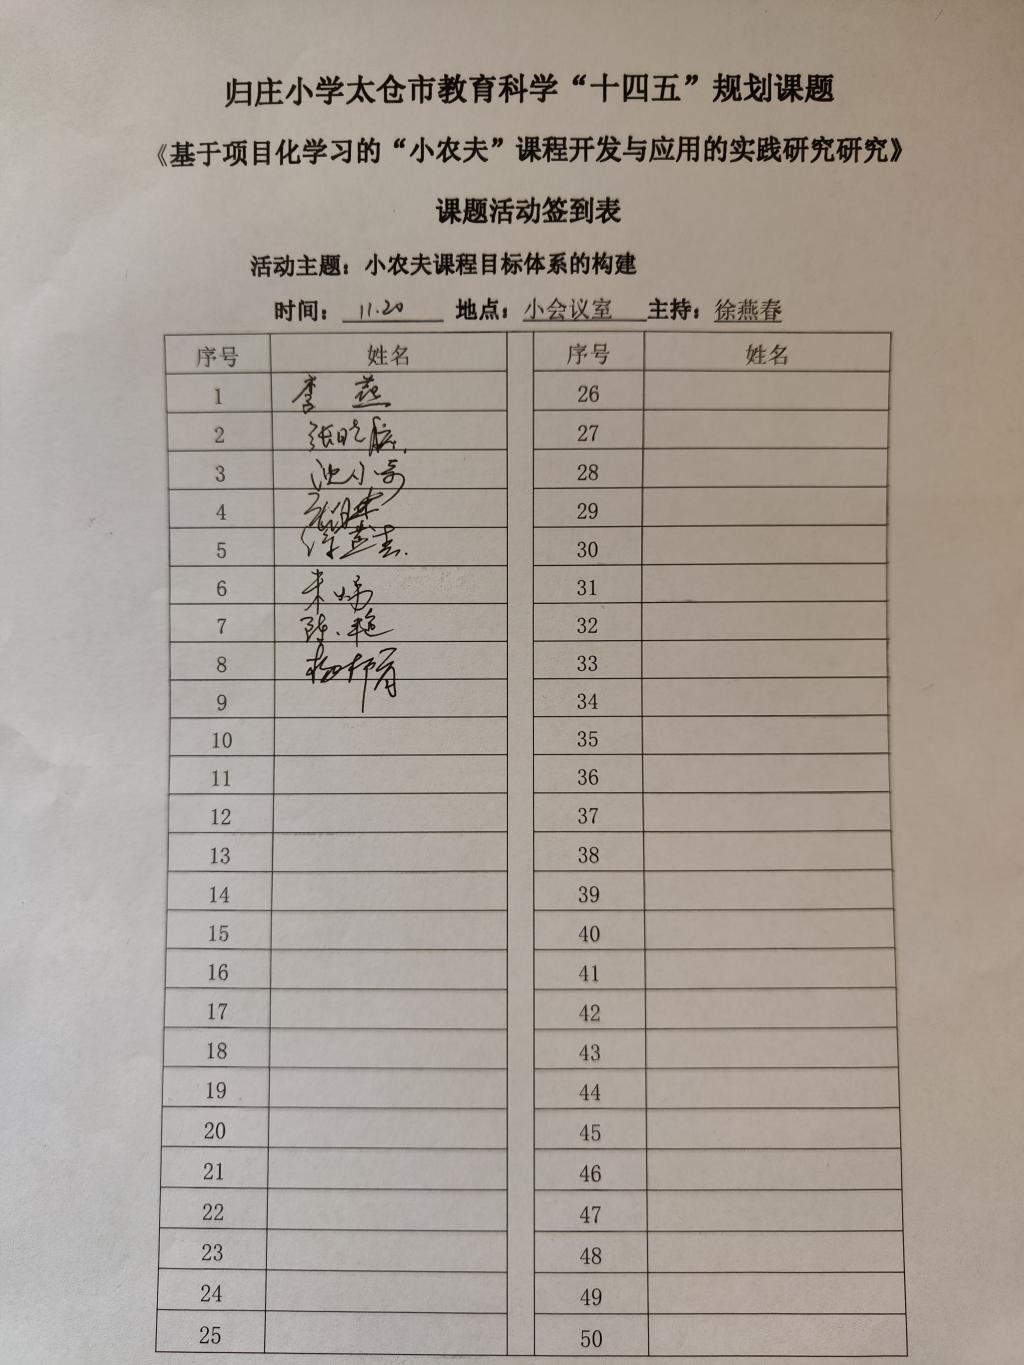 归庄小学太仓市教育科学“十四五”规划课题
《基于项目化学习的“小农夫”课程开发与应用的实践研究研究》
课题活动签到表
活动主题：小农夫课程目标体系的构建
时间： 11.20 地点：小会议室 主持：徐燕春
序号 姓名 序号 姓名
1 李燕 26
2 张晓 27
3 沈小 28
4 29
5 徐燕春 30
6 朱娣 31
7 陈艳 32
8 杨 33
9 34
10 35
11 36
12 37
13 38
14 39
15 40
16 41
17 42
18 43
19 44
20 45
21 46
22 47
23 48
24 49
25 50